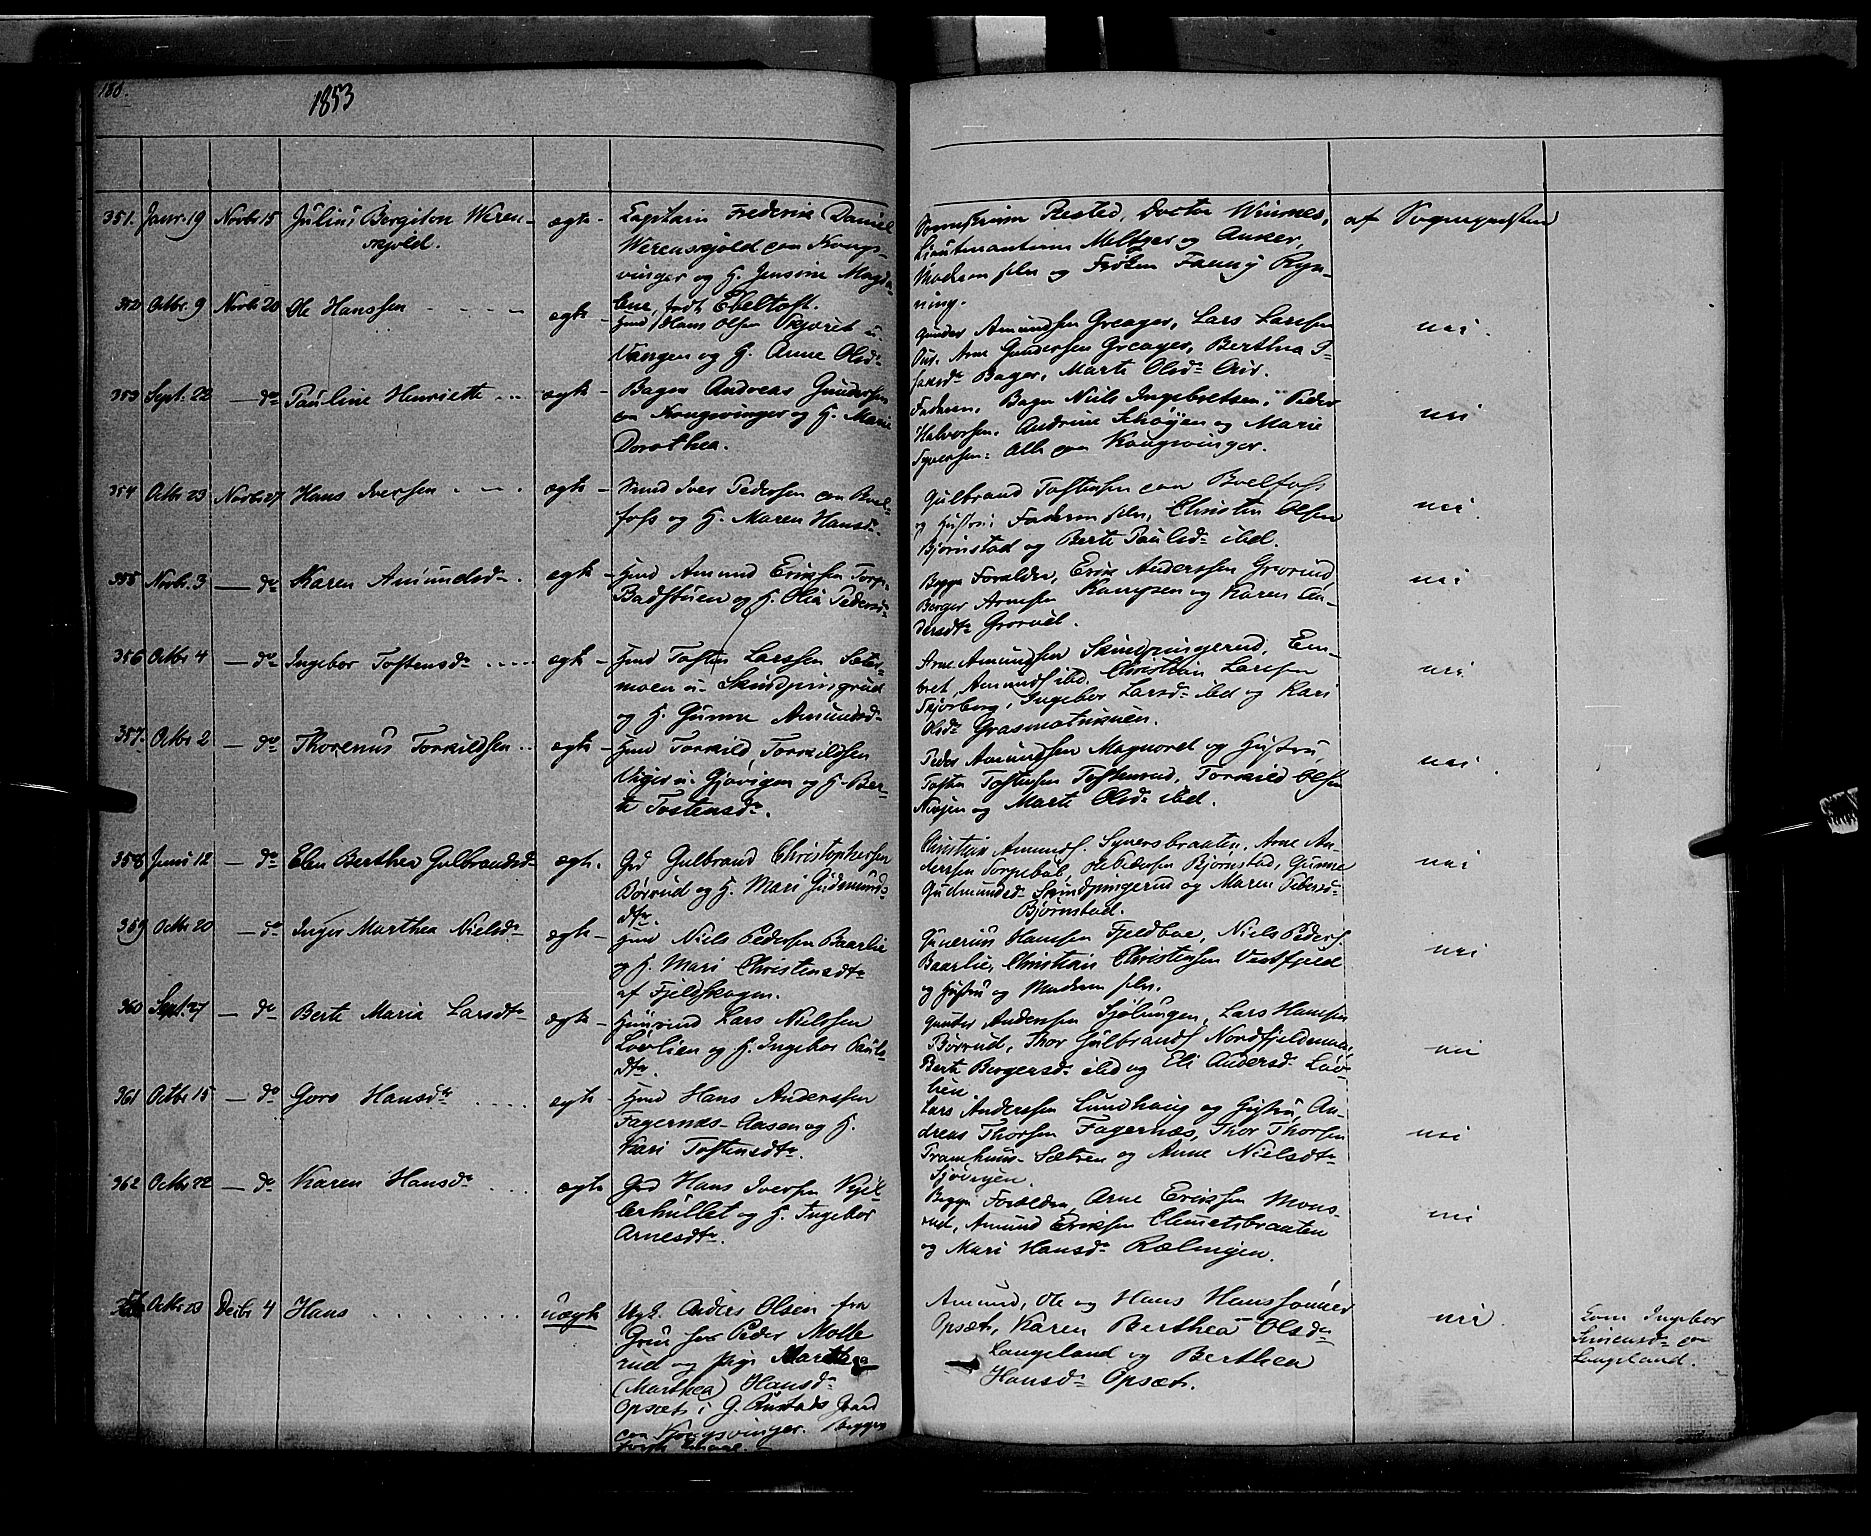 180.
1853
351. Janr. 19 Novbr 15 Julius Bergiton Weren-
skjold.
ægte Capitain Frederik Daniel
Werenskjold paa Kongs-
vinger og H. Jensine Magda-
lene, født Ebeltoft.
Rested, Doctor Winsnes,
Lieutenanterne Meltzer og Anker,
Moderen selv og Frøken Fanny Ryn-
ning.
af Sognepræsten
352 Octbr 9 Novbr 20 Ole Hanssen
ægte Hmd Hans Olsen Skjøret u.
Vangen og H. Anne Olsdr
Gunder Amundsen Greager, Lars Larsen
Aur. Arne Gundersen Greager, Berthea I-
saksdr Bager, Marte Olsdr Aur.
nei.
353 Septr. 22 do Pauline Henriette
ægte Bager Andreas Gundersen
paa Kongsvinger og H. Marie
Dorothea.
Faderen, Bager Niels Ingebretsen, Peder
Halvorsen, Andrine Schøyen og Marie
Syversen: Alle paa Kongsvinger.
nei
354 Octbr 23 Novbr 27 Hans Iversen
ægte Hmd Iver Pedersen paa Bøel-
foss og H. Maren Hansdr
Gulbrand Tostensen paa Bøelfoss
og Hustru; Faderen selv, Christen Olsen
Bjørnstad og Berte Paulsdr ibd.
nei.
355 Novbr. 3 do Karen Amundsdr
ægte Hmd Amund Eriksen Torp-
Badstuen og H. Olia Pedersdr
Begge Forældre, Erik Anderssen Grorud,
Berger Arnesen Kampen og Karen An-
dersdtr Grorud.
nei
356 Octbr 4 do Ingebor Tostensdr
ægte Hmd Tosten Larssen Sæter-
moen u. Skindpungrud
og H. Gunne Amundsdr
Arne Amundsen Skindpungerud, Em-
bret Amunds ibd. Christian Larsen
Tjorberg, Ingebor Larsdr ibd og Kari
Olsdr Grasmatuknuen.
nei
357. Octbr 2 do Thorenus Torkildsen
ægte Hmd Torkild Torkildsen
Viger u. Gjøvigen og H. Ber-
te Tostensdr.
Peder Amundsen Magnoret og Hustru,
Tosten Tostensen Tostenrud, Torkild Olsen
og Marte Olsdr ibd.
nei.
358 Juni 12 do Elen Berthea Gulbrandsdr
ægte. Grd Gulbrand Christophersen
Børrud og H. Mari Gudmunds-
dtr.
Christian Amunds. Synersbraaten, Arne An-
derssen Torpebøl, Ole Pedersen Bjørnstad, Gunne
Gudmundsdr Skindpungerud og Maren Pedersdr
Bjørnstad.
nei
359 Octbr 20 do Inger Marthea Nielsdr
ægte Hmd Niels Pedersen Baarlie
og H. Mari Christensdtr
af Fjeldskogen.
Gunerius Hansen Fjeldboe, Niels Peders.
Baarlie, Christian Christensen Vestfjeld
og Hustru og Moderen selv.
nei
360 Septr. 27 do Berte Maria Larsdtr
ægte Huusmd Lars Nielssen
Løvlien og H. Ingebor Pauls-
dtr.
Gunder Anderssen Sjølungen, Lars Hansen
Børrud, Thor Gulbrands Nordfjeldmoen,
Berte Bergersdr ibd og Eli Andersdr Løv-
lien.
nei
361 Octbr 15 do Goro Hansdtr
ægte Hmd Hans Anderssen
Fagernæs-Aasen og H.
Kari Tostensdtr.
Lars Anderssen Lundhaug og Hustru, An-
dreas Thorsen Fagernæs, Thor Thorsen
Framhuus-Sætren og Anne Nielsdtr
nei
362 Octbr 22 do Karen Hansdr
ægte Grd Hans Iversen Kjel-
lerhullet og H. Ingebor
Arnesdtr.
Begge Forældre, Arne Eriksen Mons-
rud, Amund Eriksen Clemetsbraaten
og Mari Hansdr Rælingen.
nei
Octbr 23 Decbr 4 Hans
uægte Ugk. Anders Olsen fra
Grue hos Peder Molte
rud og Pige Marthea
(Marthea) Hansdr
Opsæt i G. Austads Gaard
paa Kongsvinger. Begges
Amund, Ole og Hans Hanssønner
Opsæt, Karen Berthea Olsdr
Langeland og Berthea
Hansdr Opsæt.
nei.
Ingebor
Simensdr
Langeland.